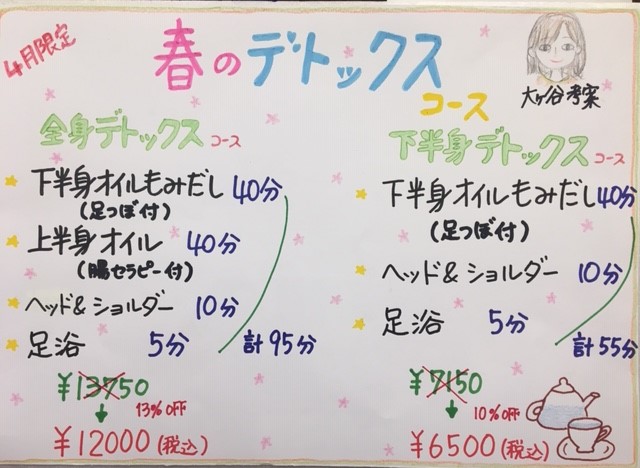 4月限定
春のデトックス
コース
大ケ谷考案
全身デトックス コース
下半身オイルもみだし 40分
(足つぼ付)
上半身オイル 40分
(腸セラピー付)
ヘッド&ショルダー 10分
足浴 5分
計95分
¥13750
↓ 13%OFF
¥12000(税込)
下半身デトックス コース
下半身オイルもみだし 40分
(足つぼ付)
ヘッド&ショルダー 10分
足浴 5分
計55分
¥7150
↓ 10%OFF
¥6500(税込)